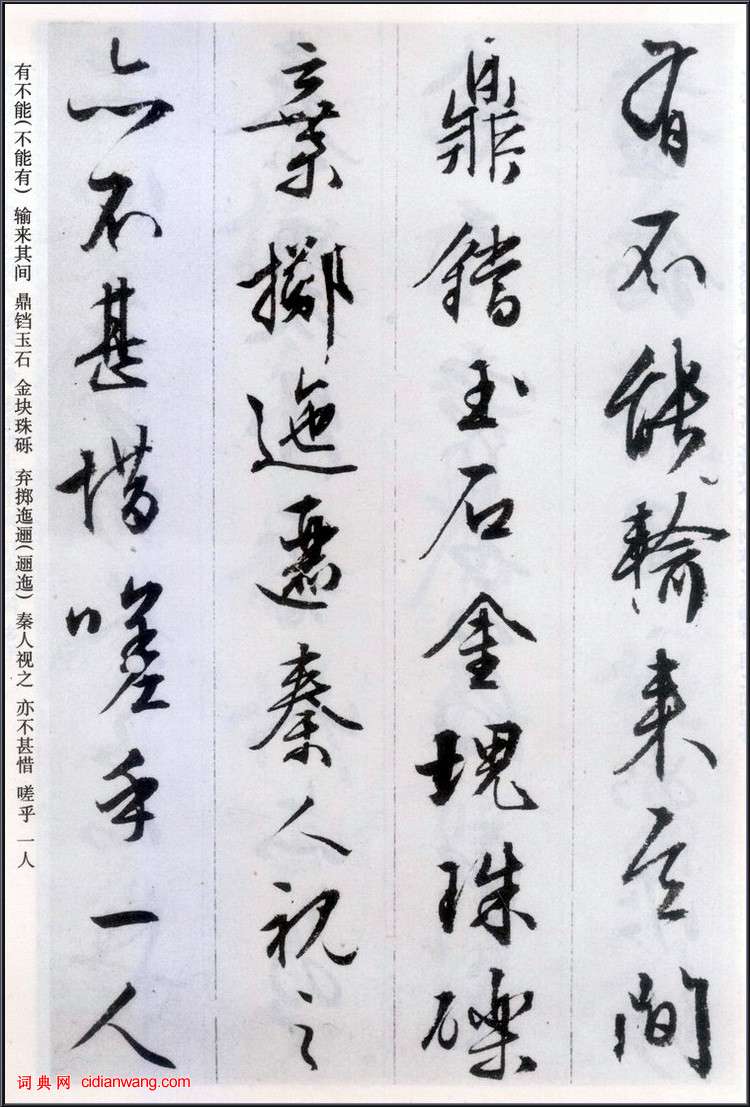 有不能輸来其間
鼎鐺玉石金塊珠礫
棄擲迤邐秦人視之
亦不甚惜嗟乎一人
有不能(不能有) 输来其间 鼎铛玉石 金块珠砾 弃掷迤逦(逦迤) 秦人视之 亦不甚惜 嗟乎 一人
词典网 cidianwang.com